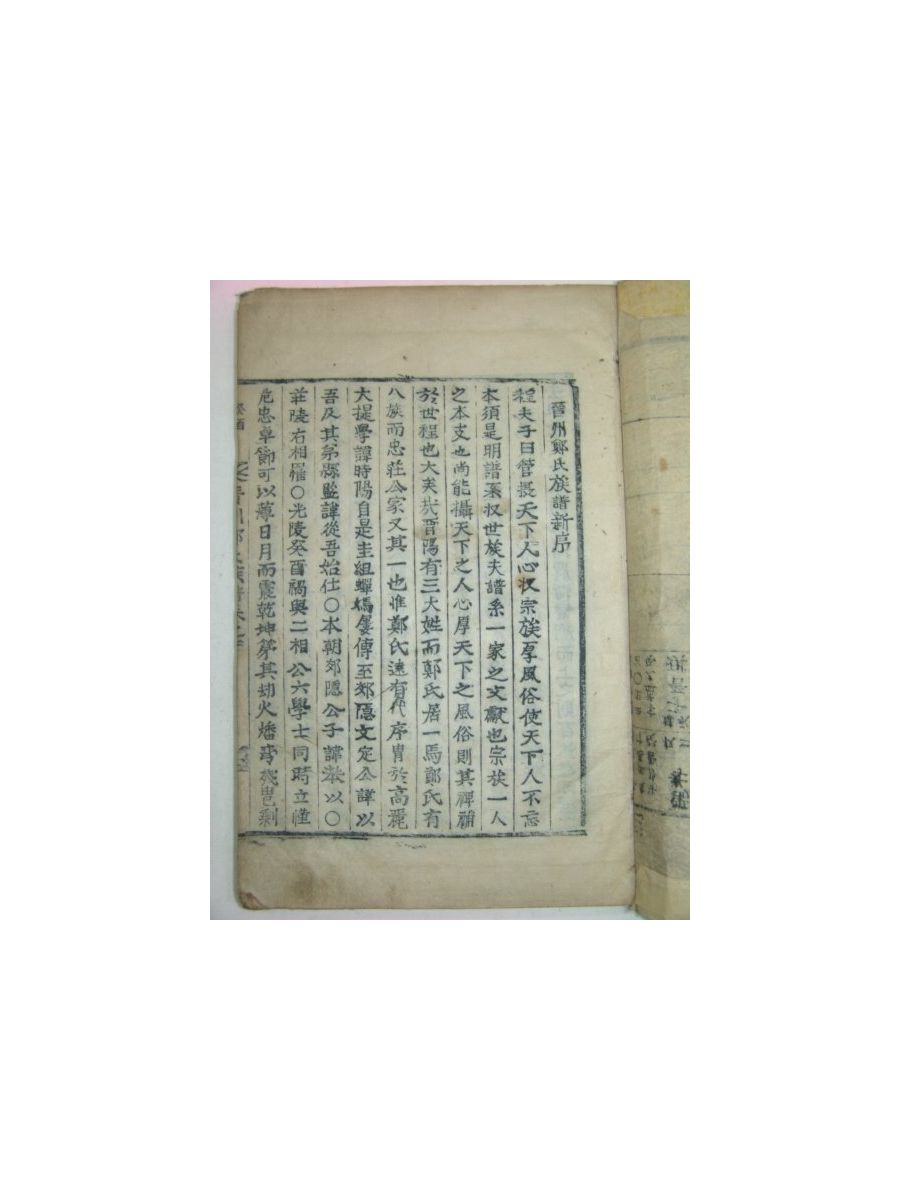 晉州鄭氏族譜新序
程夫子曰管攝天下人心收宗族厚風俗使天下人不忘
本須是明譜系收世族夫譜系一家之文獻也宗族一人
之本支也尚能攝天下之人心厚天下之風俗則其裨補
於世程也大矣哉晋陽有三大姓而鄭氏居一焉鄭氏有
八族而忠莊公家又其一也惟鄭氏遠有代序冑於高麗
大提學諱時陽自是圭組蟬嫣屢傳至郊隱文定公諱以
吾及其弟縣監諱從吾始仕〇本朝郊隱公子諱苯以〇
莊陵右相罹〇光陵癸酉禍與二相公六學士同時立慬
危忠卓節可以薄日月而震乾坤第其劫火燔膏殘邑剩